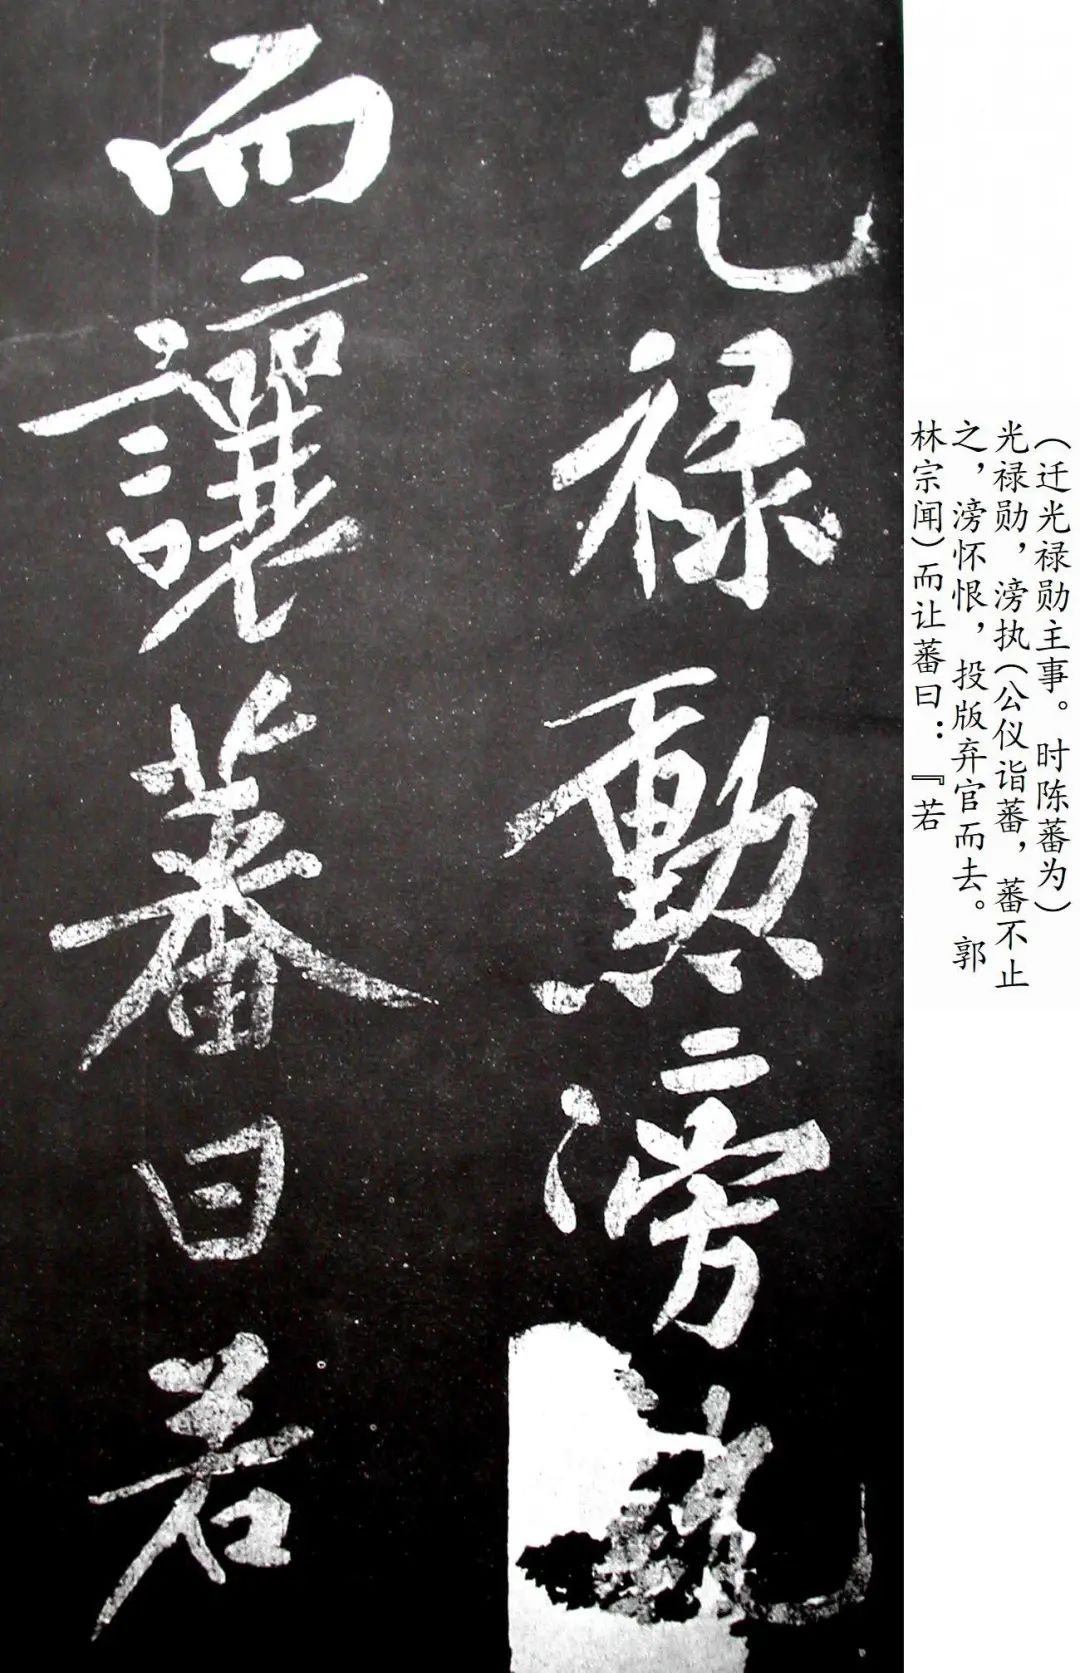 光禄勲滂執
而讓蕃曰若
（迁光禄勋主事。时陈蕃为）
光禄勋，滂执（公仪诣蕃，蕃不止
之，滂怀恨，投版弃官而去。郭
林宗闻）而让蕃曰：『若